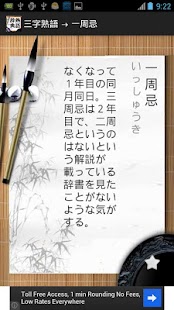 9:22
三字熟語 → 一周忌
一周忌
いっしゅうき
なくなって
1年目の同
月同日。三
周忌は2年
目。二周
忌というの
は
という解説が
載っている
辞書を見た
ことがない
ような気が
する。
Toll Free Access, 1 min Rounding No Fees,
Low Rates Everywhere